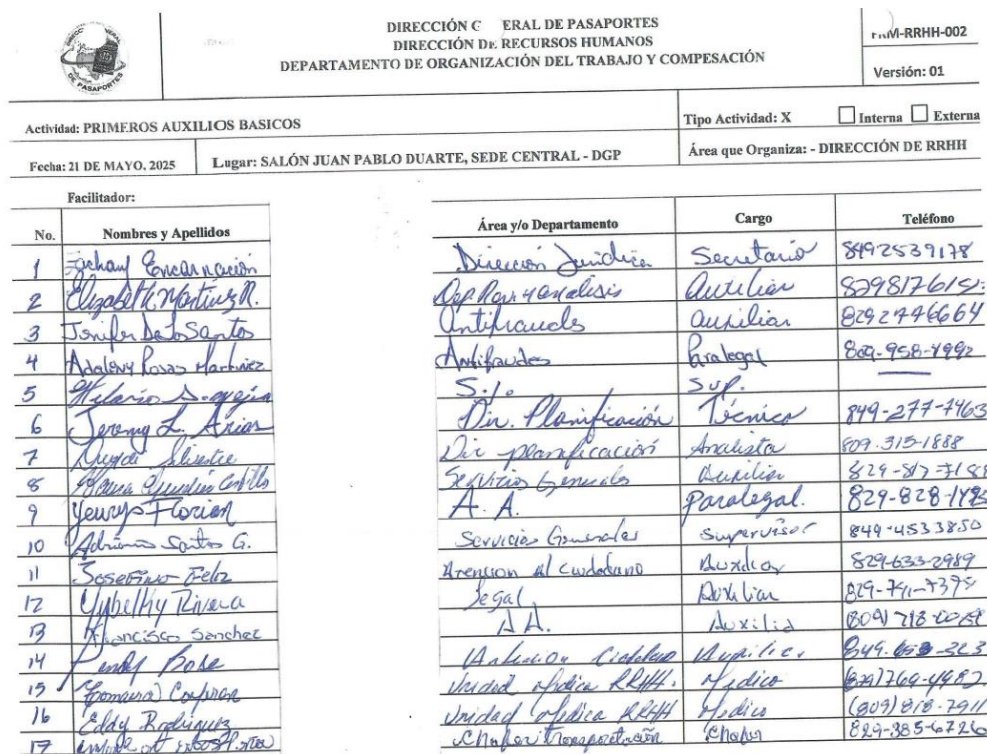 DIRECCIÓN GENERAL DE PASAPORTES
DIRECCIÓN DE RECURSOS HUMANOS
DEPARTAMENTO DE ORGANIZACIÓN DEL TRABAJO Y COMPESACIÓN
FRM-RRHH-002
Versión: 01
DE PASAPORTES
Actividad: PRIMEROS AUXILIOS BASICOS
Tipo Actividad: X Interna Externa
Fecha: 21 DE MAYO, 2025 Lugar: SALÓN JUAN PABLO DUARTE, SEDE CENTRAL - DGP Área que Organiza: - DIRECCIÓN DE RRHH
Facilitador:
No. Nombres y Apellidos Área y/o Departamento Cargo Teléfono
1 Encarnación Dirección Juridica Secretario 8492539178
2 Elizabeth Martinez R. analisis auxiliar
3 Jenifer De Lo Santos Antifraudes auxiliar 8292776664
4 Rosas Martinez Antifraudes Paralegal 809-958-4992
5 Hilario S.I. Sup.
6 Jeremy L. Arias Dir. Planificación Técnico 849-277-7463
7 Silvestre Dir planificación Analista 809-315-1888
8 Castillo Servicios Generales Auxiliar
9 Yeurys Florian A.A. Paralegal.
10 Adriano Santos G. Servicios Generales Supervisor 849-4533850
11 Josefina Feliz Atencion al Ciudadano Auxiliar 829-633-2989
12 Rivera Legal Auxiliar
13 Francisco Sanchez A.A. Auxilia
14 Bose
15 Unidad Medica RRHH. Medico
16 Eddy Rodriguez Unidad Medica RRHH Medico (809) 818-7911
17 Chofer transportación Chofer 829-385-6726